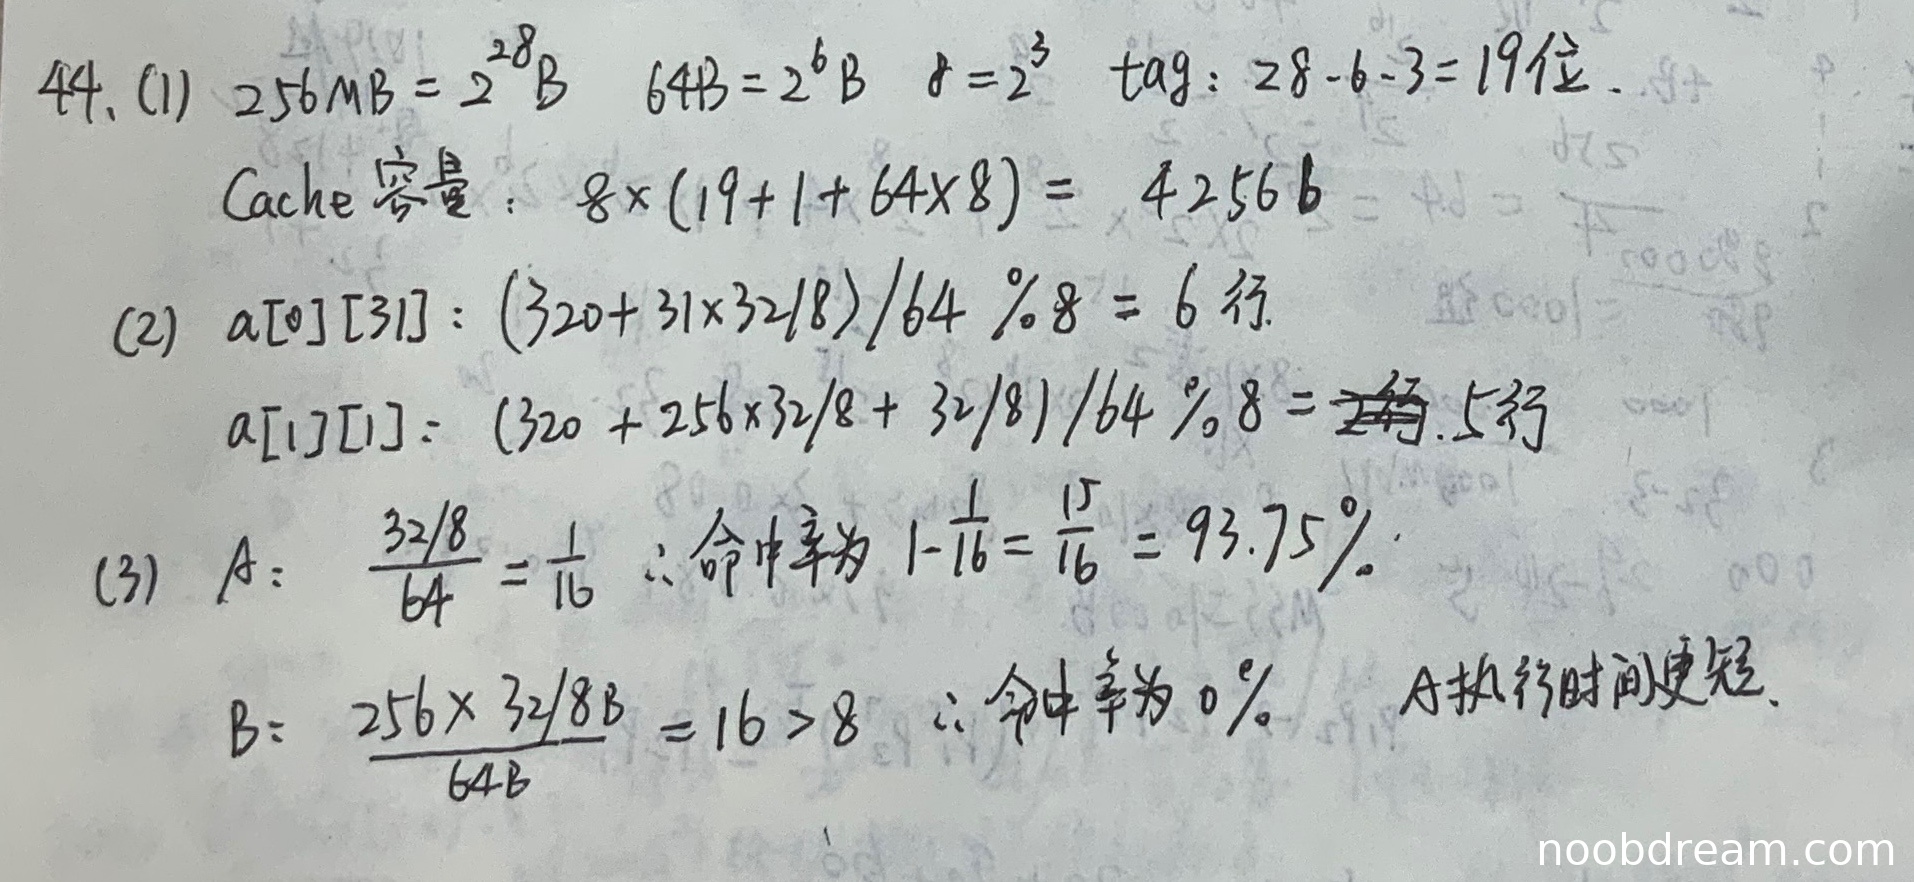 44. (1) 256MB = 2^28 B 64B = 2^6 B 8 = 2^3 tag: 28-6-3=19位.
Cache容量: 8×(19+1+64×8) = 4256b
(2) a[0][31]: (320+31×32/8)/64 %8 = 6行.
a[1][1]: (320+256×32/8+32/8)/64 %8 = .5行
(3) A: 32/8 / 64 = 1/16 ∴命中率为 1-1/16 = 15/16 = 93.75%.
B: 256×32/8B / 64B = 16>8 ∴命中率为0% A执行时间更短.
noobdream.com